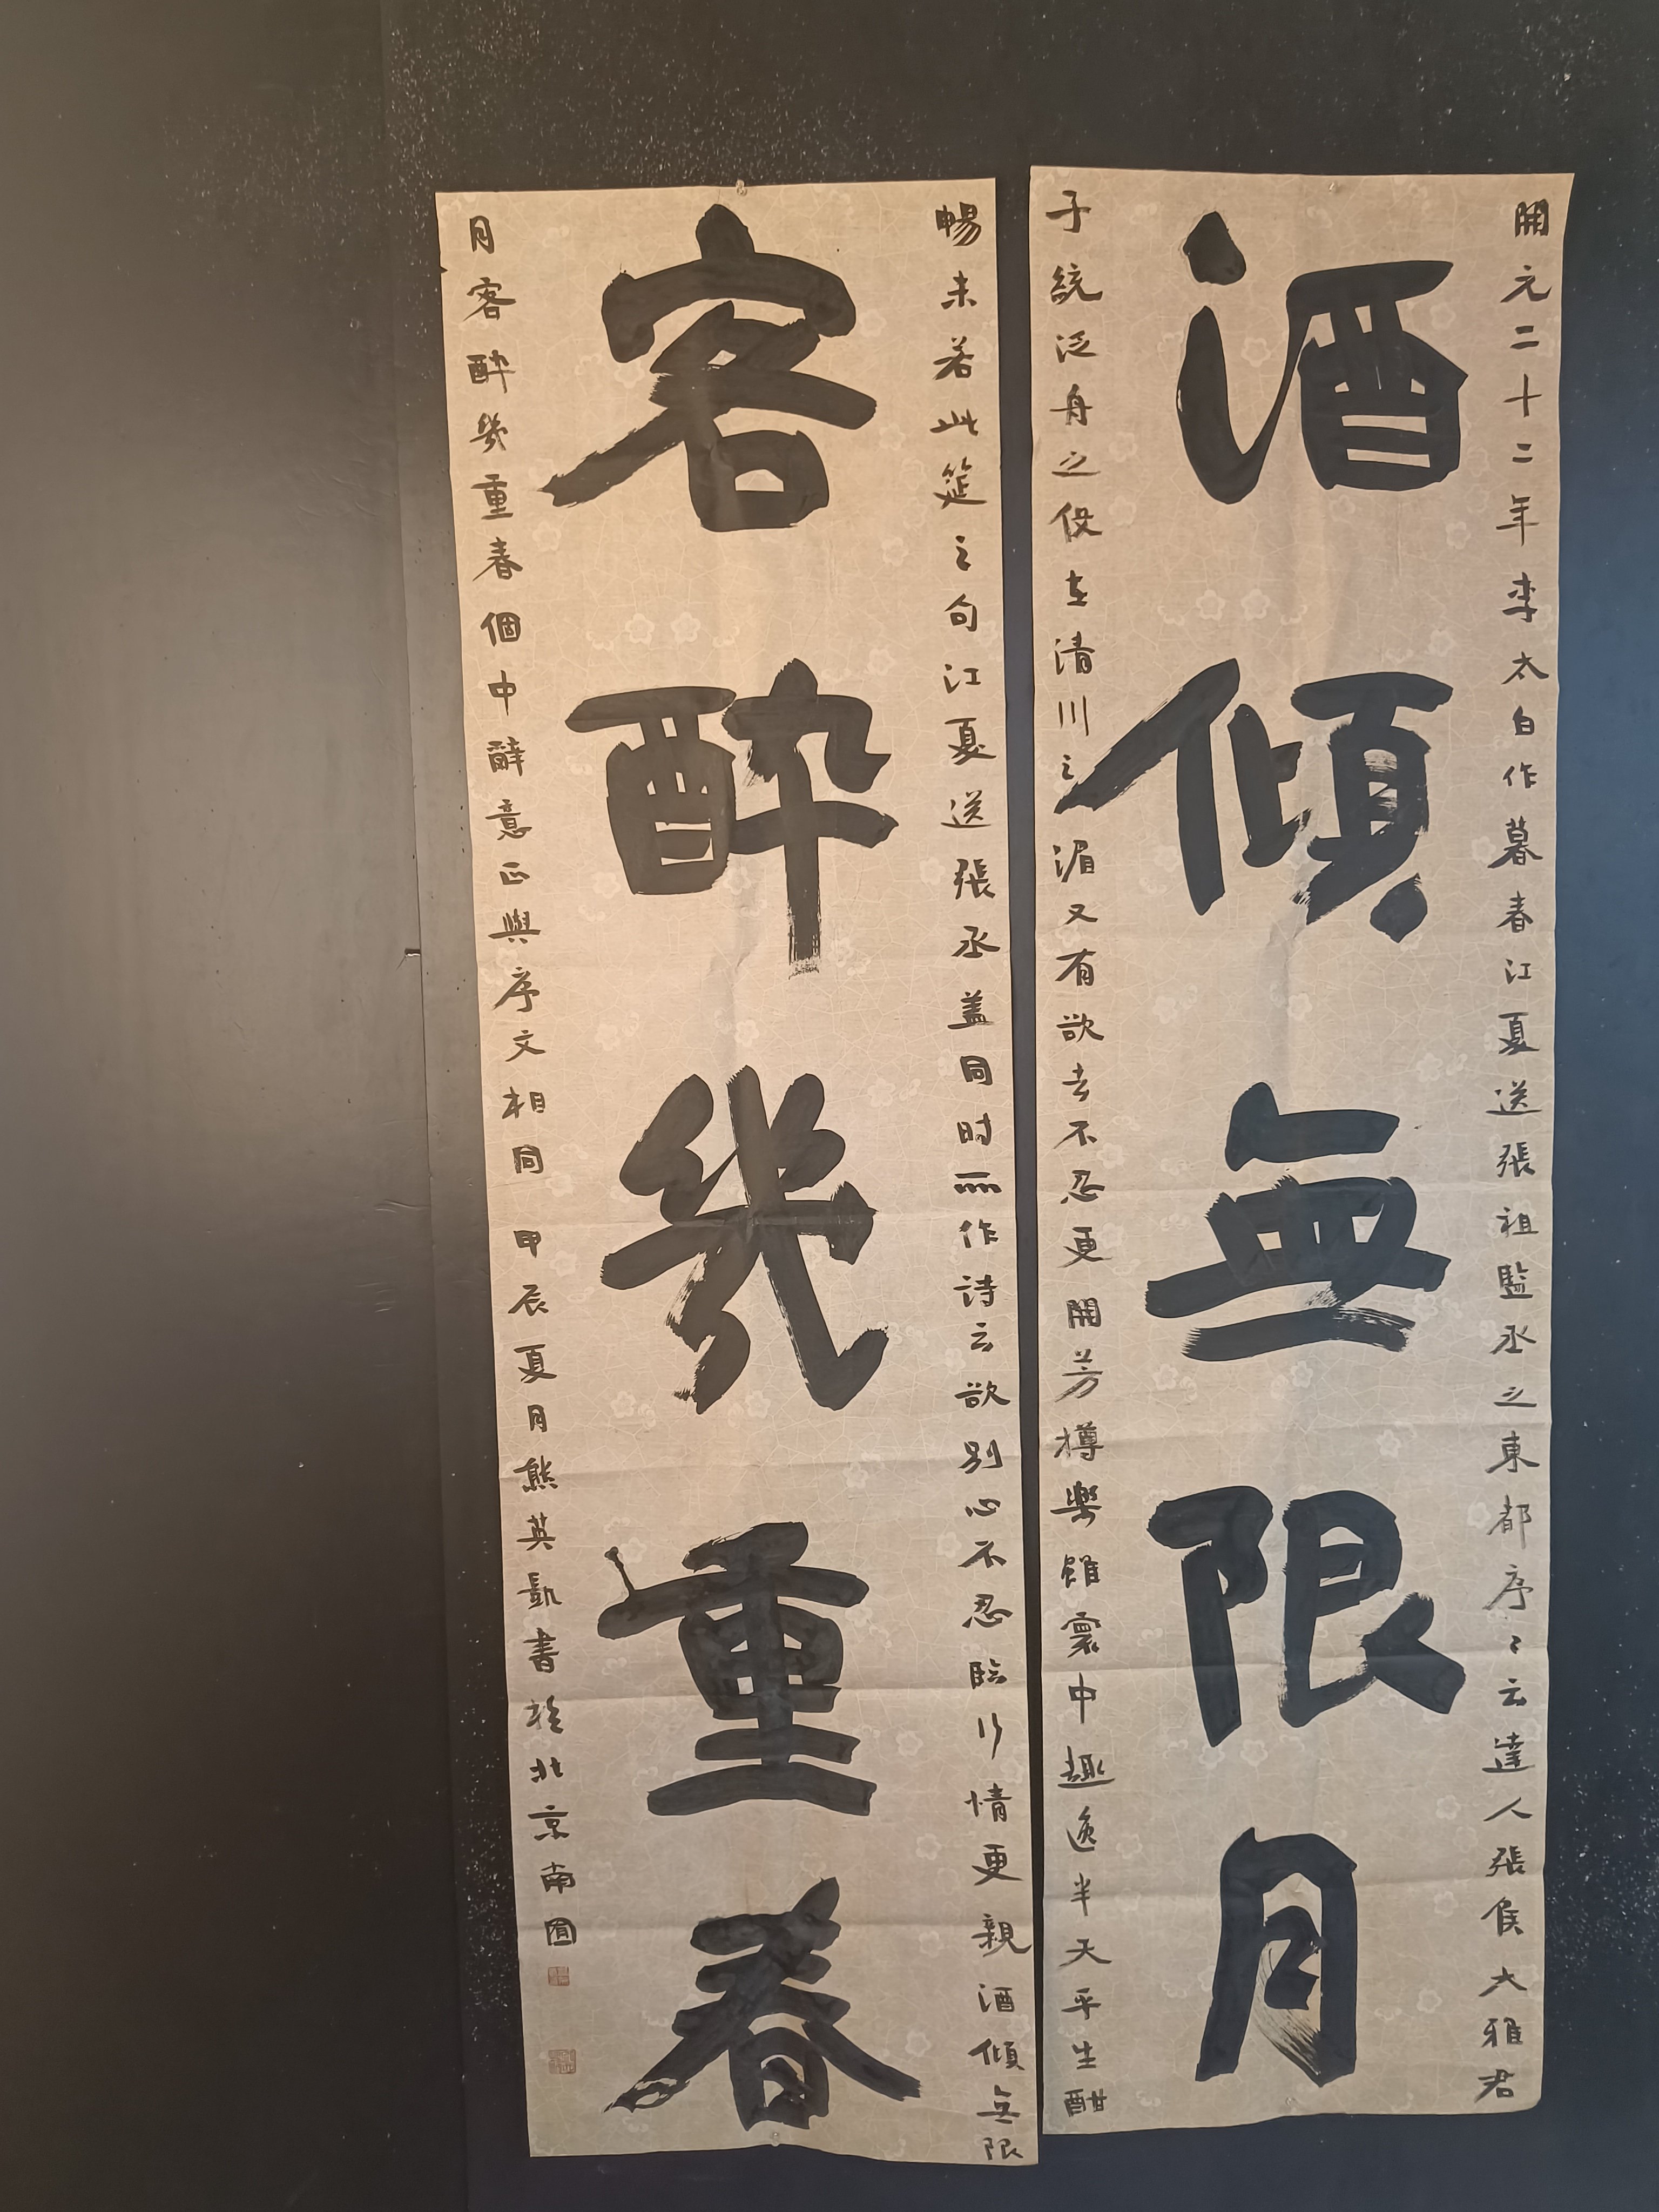 開元二十二年李太白作暮春江夏送張祖監丞之東都序〻云達人張侯大雅君
酒傾無限月
子統泛舟之役在清川之湄又有欲去不忍更開芳樽樂雖寰中趣逸半天平生酣
暢未若此筵之句江夏送張丞盖同时所作詩云欲別心不忍臨行情更親酒傾無限
客醉幾重春
月客醉幾重春個中辭意正與序文相同 甲辰夏月熊英凱書於北京南囿